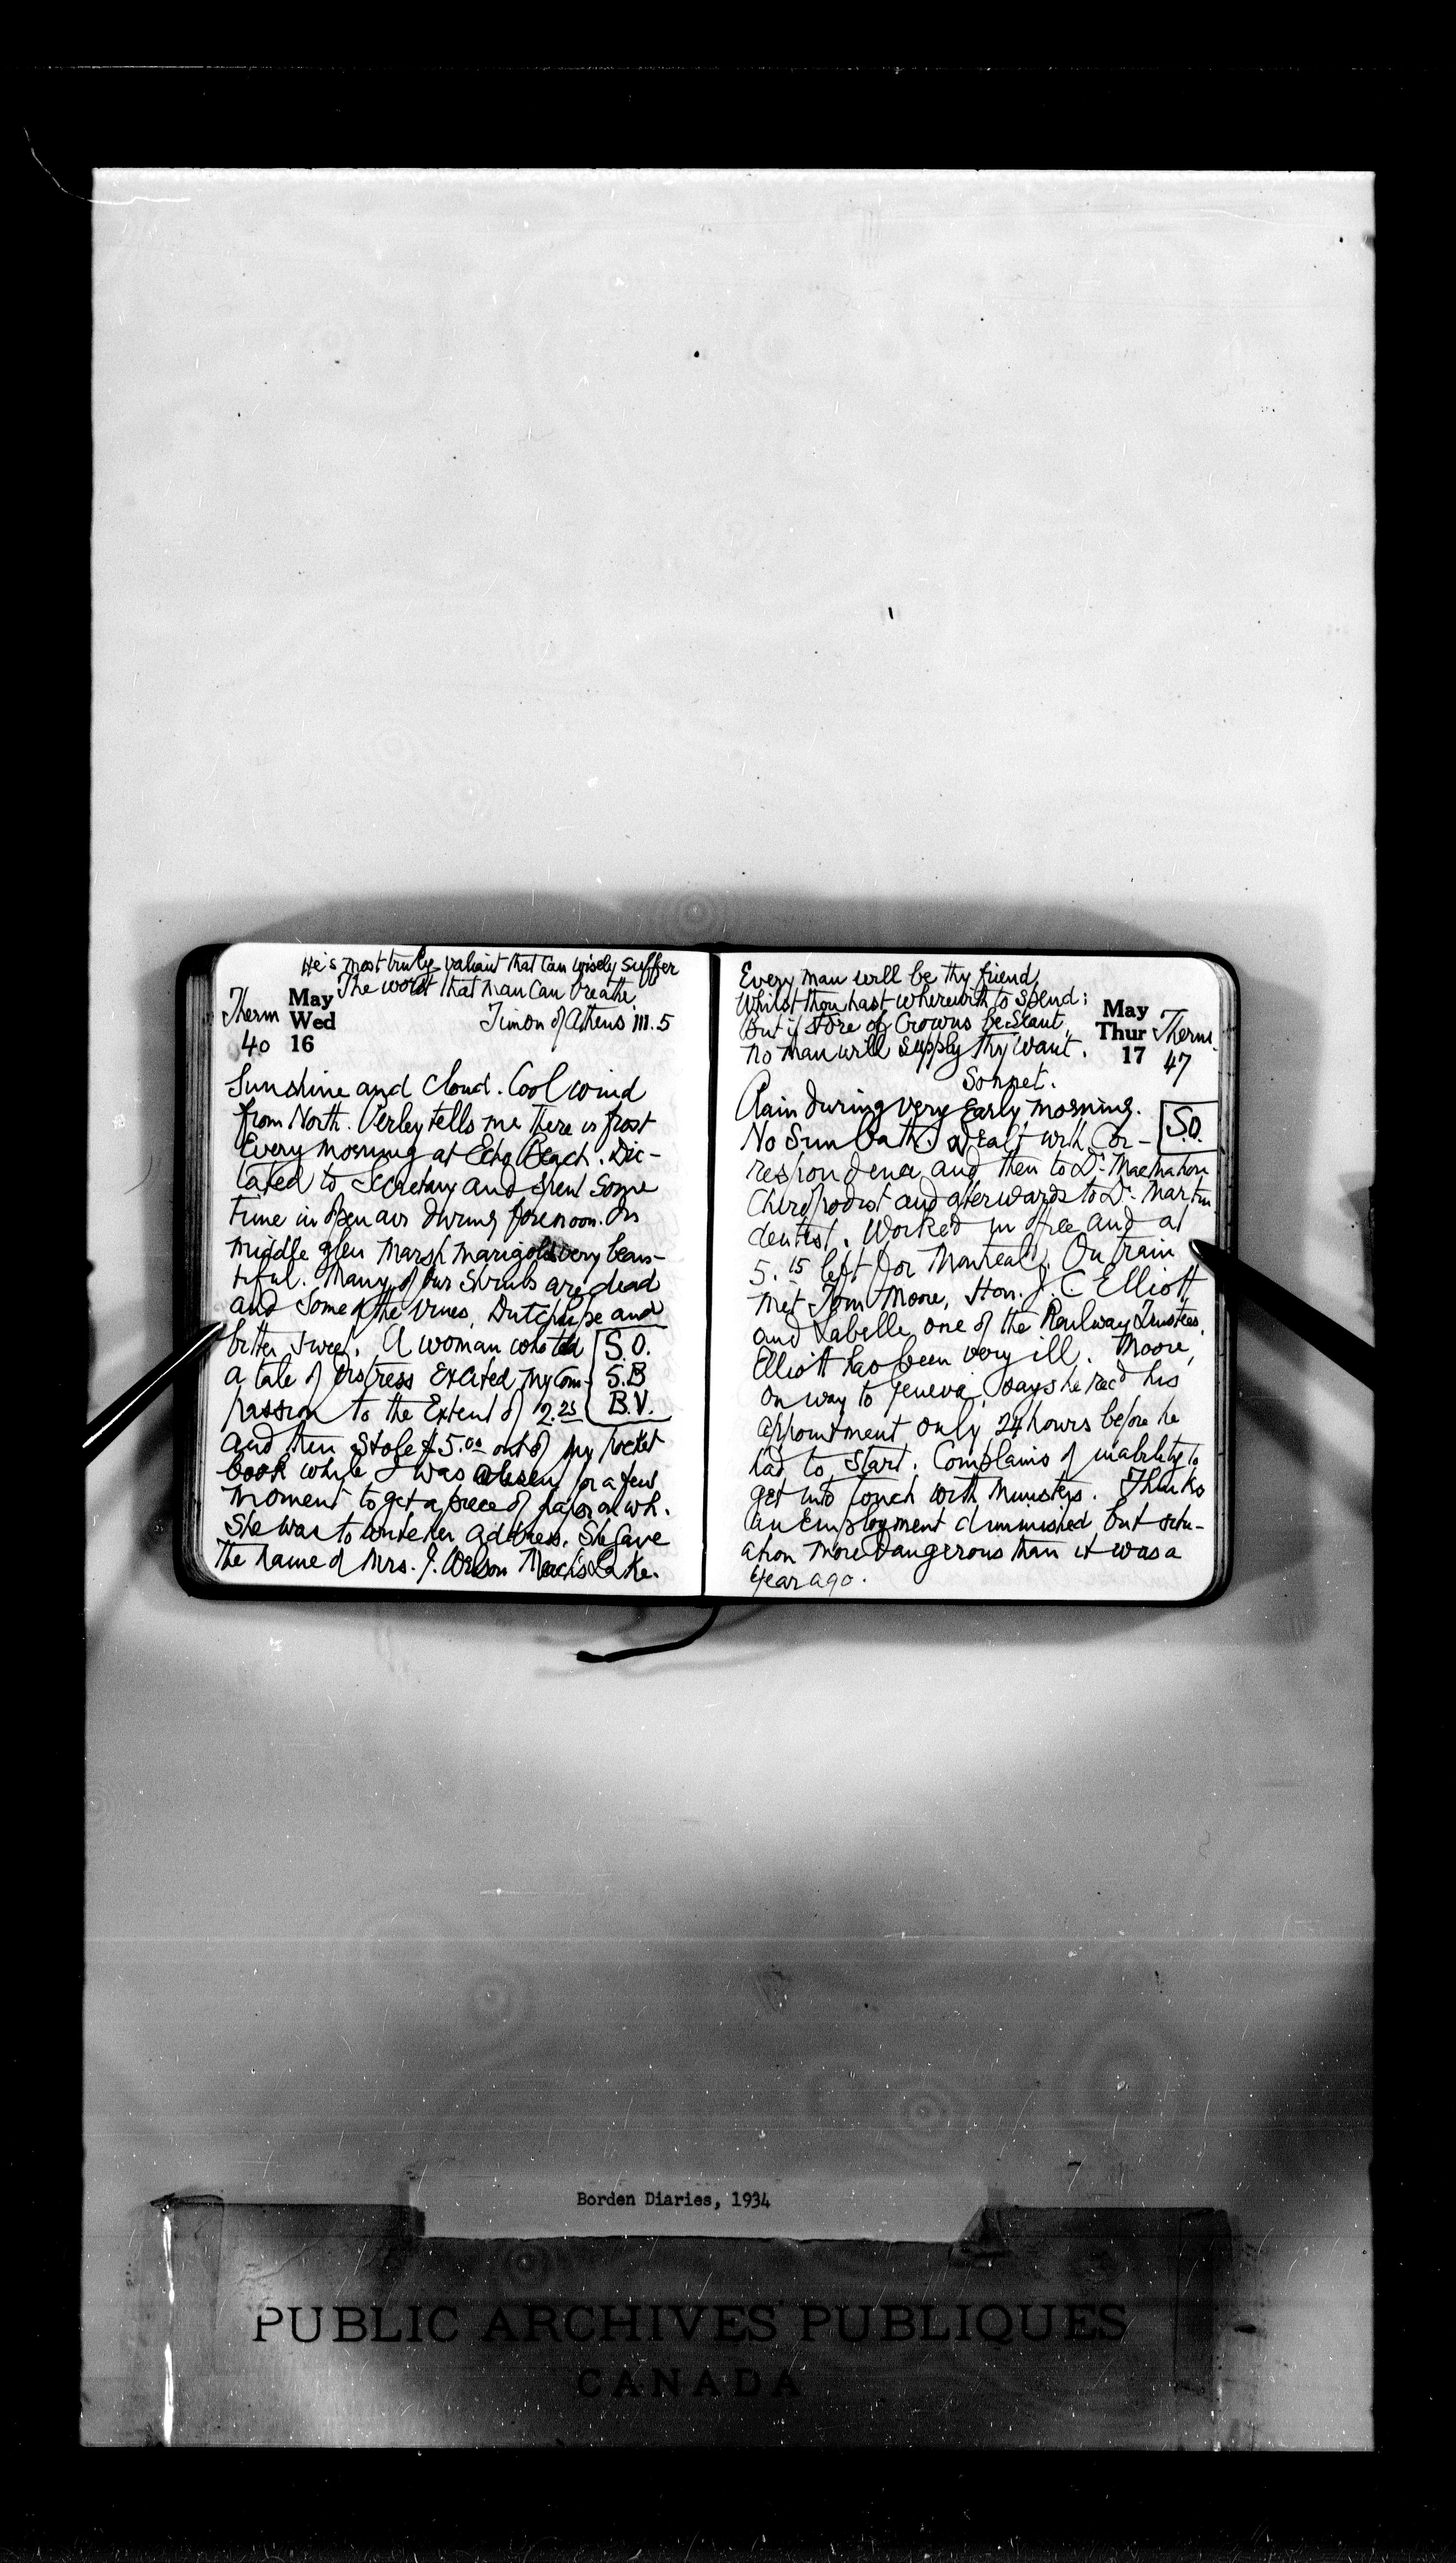 He's most truly valiant that can wisely suffer
The worst that man can breathe
Timon of Athens III.5
Therm
40
May
Wed
16
Sunshine and cloud. Cool wind
from North. Verley tells me there is frost
every morning at Echo Beach. Dic-
tated to Secretary and spent some
time in open air during forenoon. In
middle glen Marsh marigolds very beau-
tiful. Many of our Shrubs are dead
and some of the vines, Dutch pipe and
bitter sweet. A woman who told
a tale of distress excited my com-
passion to the extent of 2.25
S.O.
S.B
B.V.
and then stole $5.00 out of my pocket
book while I was absent for a few
moment to get a piece of paper on wh.
she was to write her address. She gave
the name of Mrs. J. Wilson Meach's Lake.
Every man will be thy friend
Whilst thou hast wherewith to spend;
But if store of Crowns be scant,
No man will supply thy want.
Sonnet.
May
Thur
17
Therm.
47
Rain during very early morning.
No Sun bath. Dealt with Cor-
S.O.
respondence and then to Dr. MacMahon
Chiropodist and afterwards to Dr. Martin
dentist. Worked in office and at
5.15 left for Montreal. On train
met Tom Moore, Hon. J. C Elliott
and Labelle one of the Railway Trustees.
Elliott has been very ill. Moore,
on way to Geneva, says he recd his
appointment only 24 hours before he
had to start. Complains of inability to
get into touch with Ministers. Thinks
unemployment diminished but situ-
ation more dangerous than it was a
year ago.
Borden Diaries, 1934
PUBLIC ARCHIVES PUBLIQUES
CANADA